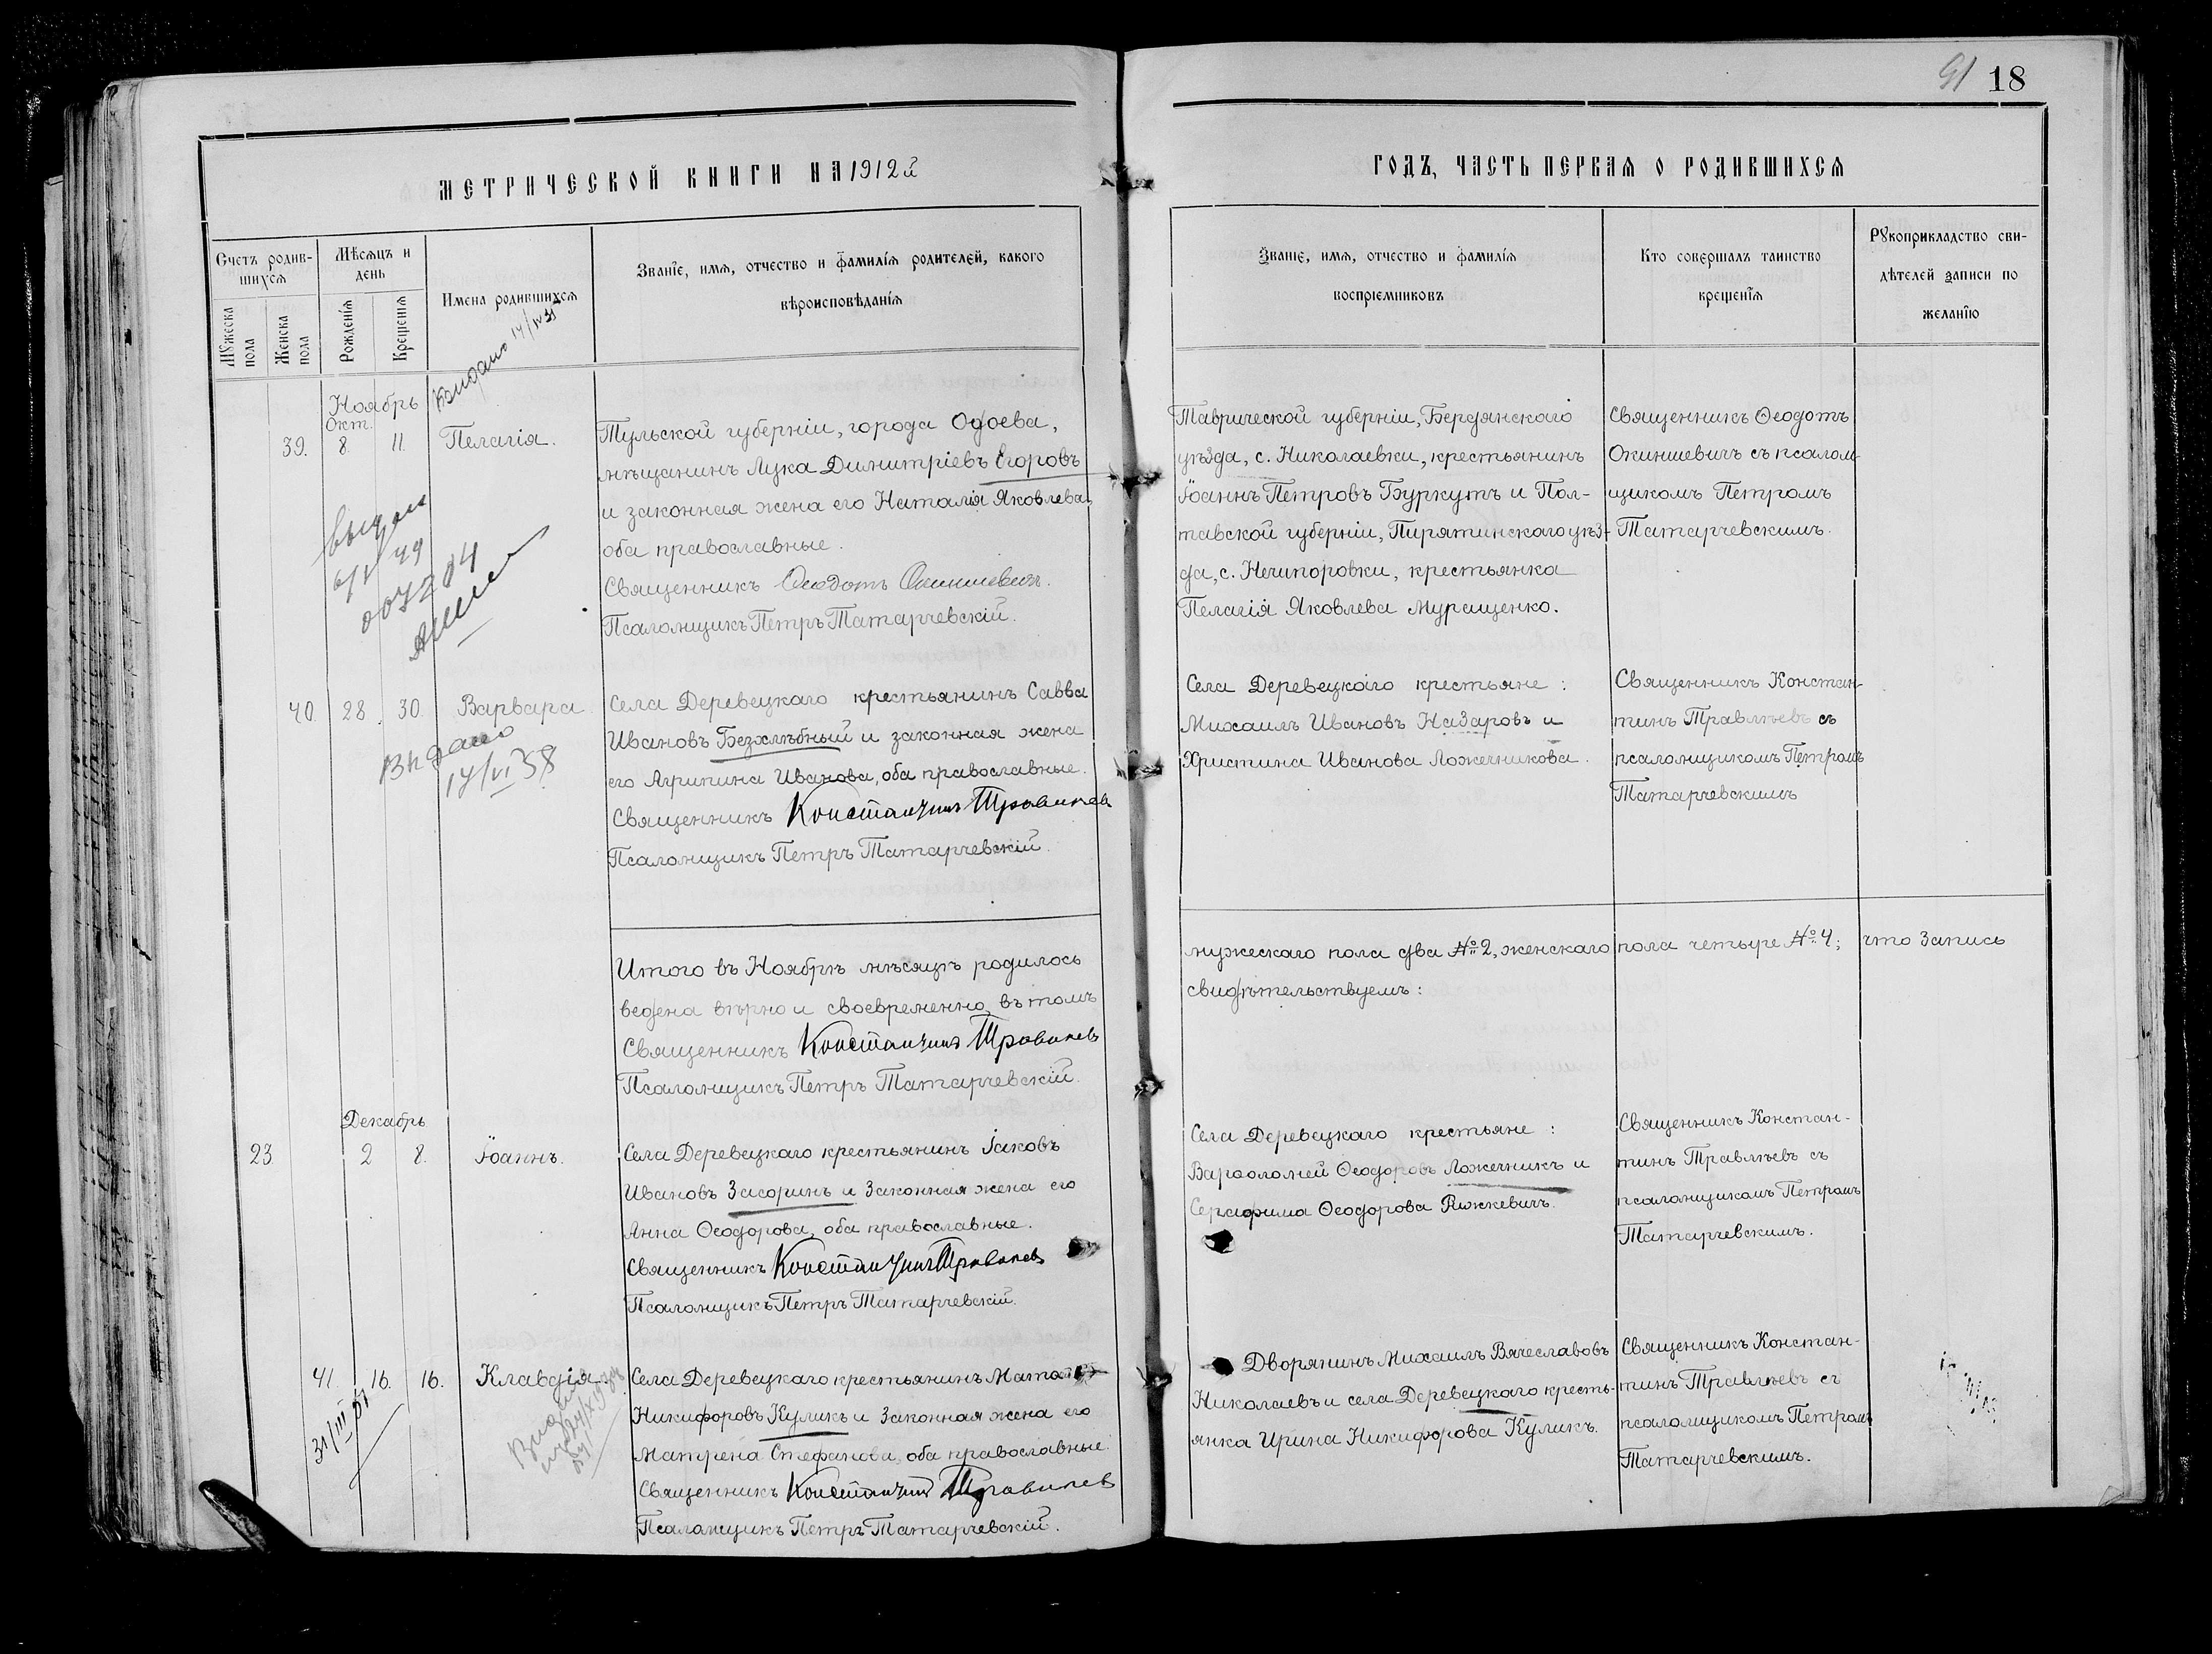 91 18
МЕТРИЧЕСКОЙ КНИГИ НА 1912й
ГОДЪ, ЧАСТЬ ПЕРВАЯ О РОДИВШИХСЯ
Счетъ родив-
шихся
Мужеска пола
Женска пола
Мѣсяцъ и
день
Рожденія
Крещенія
Имена родившихся
Званіе, имя, отчество и фамилія родителей, какого
вѣроисповѣданія
Званіе, имя, отчество и фамилія
воспріемниковъ
Кто совершалъ таинство
крещенія
Рукоприкладство сви-
дѣтелей записи по
желанію
Ноябрь
Окт.
39. 8. 11. Пелагія.
Тульской губерніи, города Одоева,
мѣщанинъ Лука Димитріевъ Егоровъ
и законная жена его Наталія Яковлева,
оба православные.
Священникъ Ѳеодотъ Окиншевичъ.
Псаломщикъ Петръ Татарчевскій.
Таврической губерніи, Бердянскаго
уѣзда, с. Николаевки, крестьянинъ
Іоаннъ Петровъ Буркутъ и Пол-
тавской губерніи, Пирятинскаго уѣз-
да, с. Нечипоровки, крестьянка
Пелагія Яковлева Муращенко.
Священникъ Ѳеодотъ
Окиншевичъ съ псалом-
щикомъ Петромъ
Татарчевскимъ.
40. 28. 30. Варвара
Видано
17/VI 58
Села Деревецкаго крестьянинъ Савва
Ивановъ Безхлѣбный и законная жена
его Агрипина Иванова, оба православные.
Священникъ Константинъ Травлѣевъ
Псаломщикъ Петръ Татарчевскій.
Села Деревецкаго крестьяне:
Михаилъ Ивановъ Назаровъ и
Христина Иванова Ложечникова.
Священникъ Констан-
тинъ Травлѣевъ съ
псаломщикомъ Петромъ
Татарчевскимъ
Итого въ Ноябрѣ мѣсяцѣ родилось
мужескаго пола два № 2, женскаго пола четыре № 4; что запись
ведена вѣрно и своевременно, въ томъ
свидѣтельствуемъ:
Священникъ Константинъ Травлѣевъ
Псаломщикъ Петръ Татарчевскій.
Декабрь
23. 2 8. Іоаннъ.
Села Деревецкаго крестьянинъ Іаковъ
Ивановъ Засоринъ и законная жена его
Анна Ѳеодорова, оба православные.
Священникъ Константинъ Травлѣевъ
Псаломщикъ Петръ Татарчевскій.
Села Деревецкаго крестьяне:
Варѳоломей Ѳеодоровъ Ложечникъ и
Серафима Ѳеодорова Рижкевичъ.
Священникъ Констан-
тинъ Травлѣевъ съ
псаломщикомъ Петромъ
Татарчевскимъ.
41. 16. 16. Клавдія
Села Деревецкаго крестьянинъ
Никифоровъ Куликъ и законная жена его
Матрена Стефанова, оба православные.
Священникъ Константинъ Травлѣевъ
Псаломщикъ Петръ Татарчевскій.
Дворянинъ Михаилъ Вячеславовъ
Николаевъ и села Деревецкаго кресть-
янка Ирина Никифорова Куликъ.
Священникъ Констан-
тинъ Травлѣевъ съ
псаломщикомъ Петромъ
Татарчевскимъ.